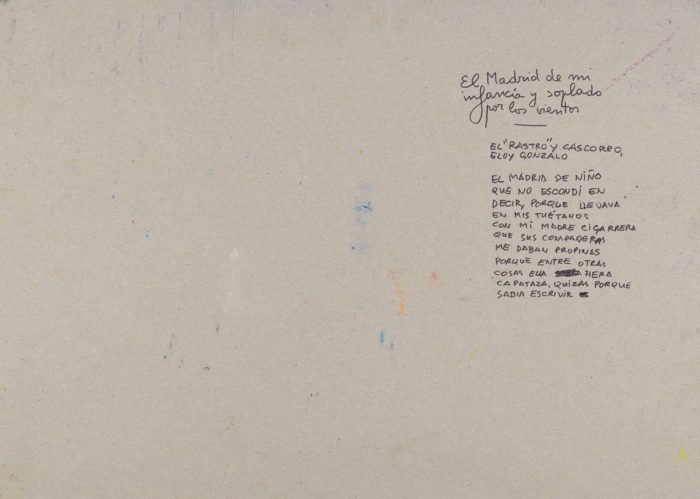 El Madrid de mi
infancia y soplado
por los vientos
EL "RASTRO" Y CASCORRO,
ELOY GONZALO
EL MADRID DE NIÑO
QUE NO ESCONDÍ EN
DECIR, PORQUE LLEVAVA
EN MIS TUÉTANOS
CON MI MADRE CIGARRERA
QUE SUS COMPAÑERAS
ME DABAN PROPINAS
PORQUE ENTRE OTRAS
COSAS ELLA HERA
CAPATAZA, QUIZAS PORQUE
SABIA ESCRIVIR